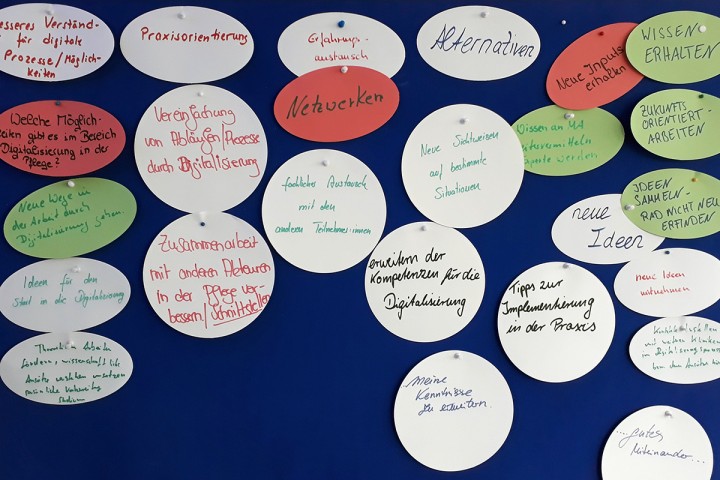 esseres Verständ-
für digitale
Prozesse/Möglich-
keiten
Welche Möglich-
keiten gibt es im Bereich
Digitalisierung in der
Pflege?
Neue Wege in
der Arbeit durch
Digitalisierung gehen.
Ideen für den
Start in die Digitalisierung
Arbeiten
fördern, wissenschaftliche
Studium
Praxisorientierung
Vereinfachung
von Abläufen/Prozesse
durch Digitalisierung
Zusammenarbeit
mit anderen Akteuren
in der Pflege ver-
bessern/Schnittstellen
Erfahrungs-
austausch
Netzwerken
fachlicher Austausch
mit den
anderen Teilnehmer:innen
Alternativen
Neue Sichtweisen
auf bestimmte
Situationen
erweitern der
Kompetenzen für die
Digitalisierung
meine
Kenntnisse
zu erweitern.
Neue Inputs
erhalten
Wissen an MA
werden
neue
Ideen
Tipps zur
Implementierung
in der Praxis
WISSEN
ERHALTEN
ZUKUNFTS
ORIENTIERT-
ARBEITEN
IDEEN
SAMMELN-
RAD NICHT NEU
ERFINDEN
neue Ideen
mitnehmen
....gutes
Miteinander...